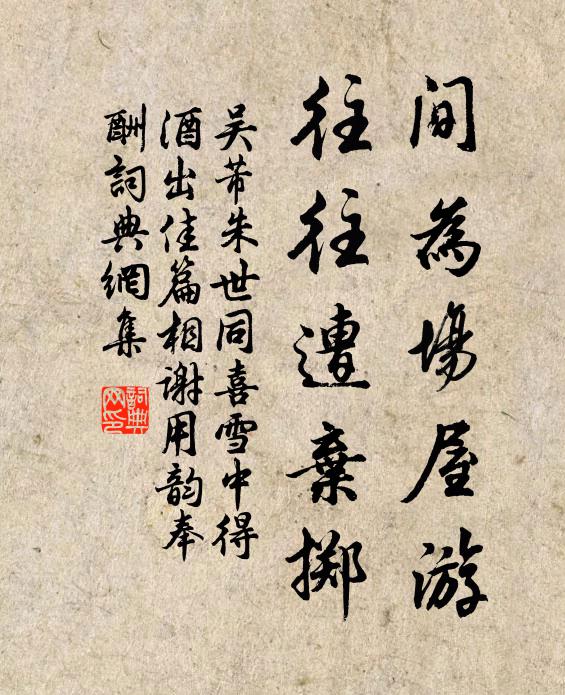 间為場屋游
往往遭棄擲
吴芾朱世同喜雪中得
酒出佳篇相谢用韵奉
酬詞典網集
詞典
网印